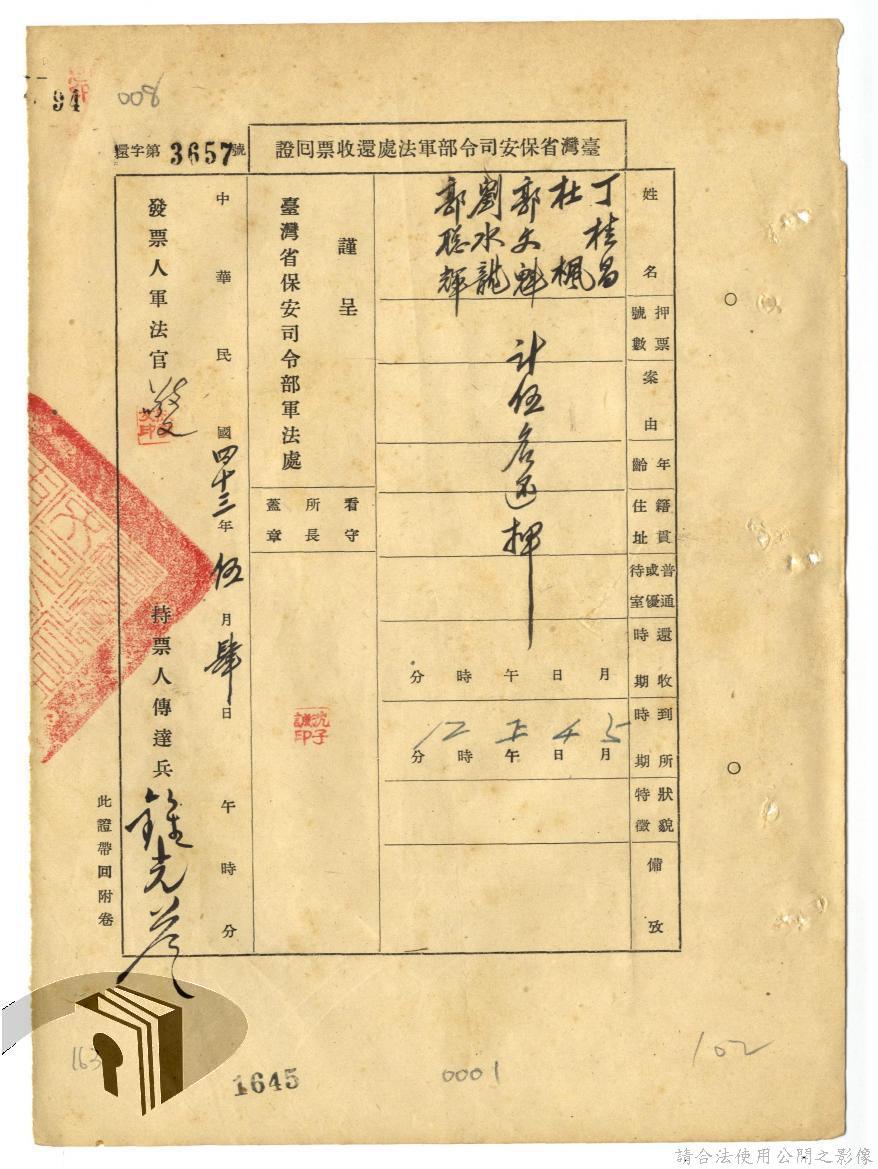 94
008
還字第3657號
臺灣省保安司令部軍法處還收票回證
姓名
丁桂昌
杜楓
郭文魁
劉水龍
郭聰輝
計伍名還押
押票號數
案由
年齡
籍貫住址
普通或優待室
還收時期
月 日 午 時 分
到所時期
5月4日上午12時 分
狀貌特徵
備攷
謹呈
臺灣省保安司令部軍法處
看守所長蓋章
沈子謙印
中華民國四十三年伍月肆日 午 時 分
發票人軍法官
持票人傳達兵
此證帶回附卷
163
1645
0001
102
請合法使用公開之影像